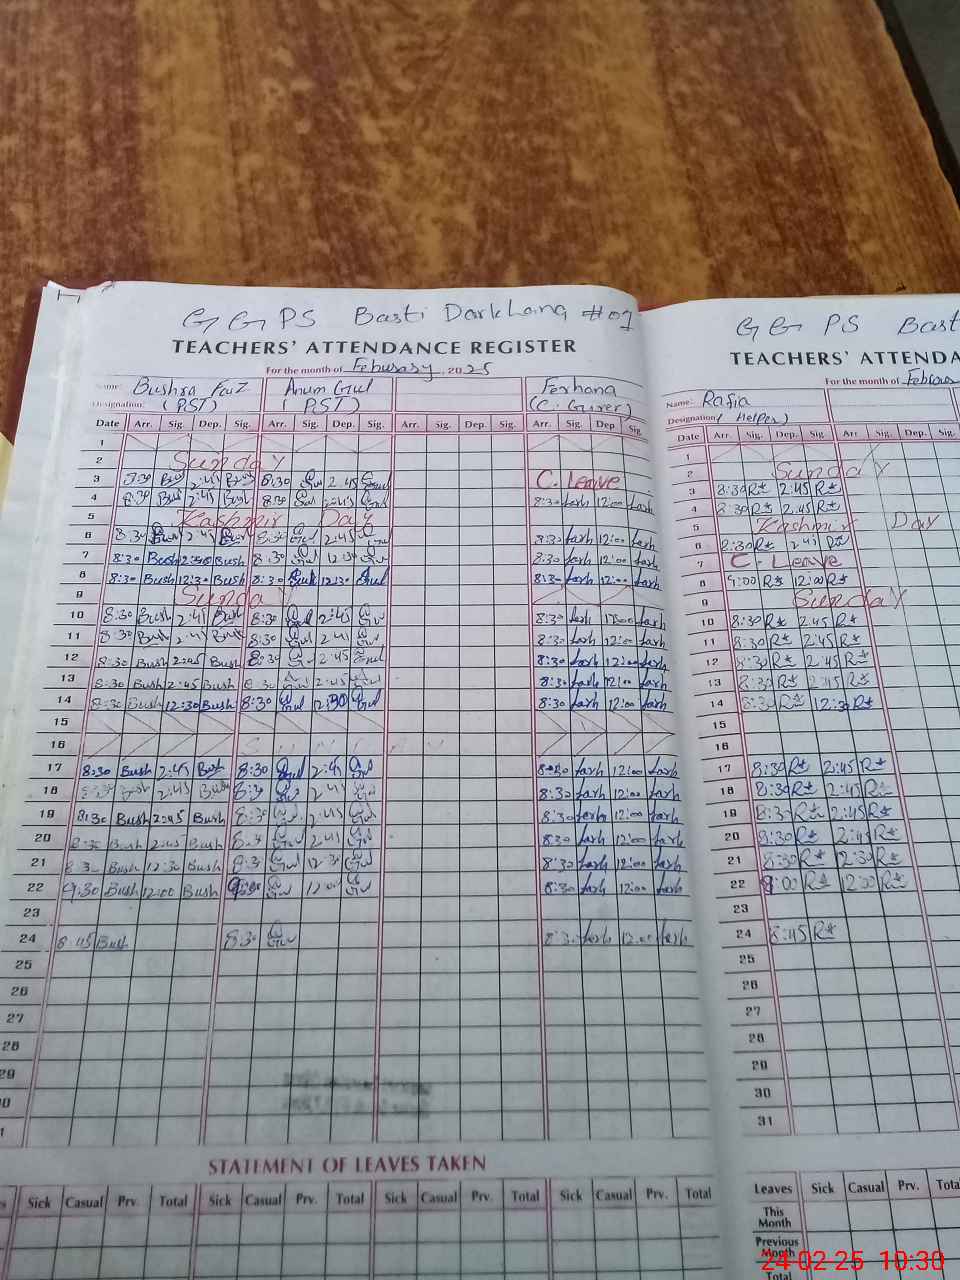 GGPS Basti Darkhang #01
TEACHERS' ATTENDANCE REGISTER
For the month of Feburary, 2025
Name: Bushra Faiz Anum Gul Ferhana
Designation: (PST) (PST) (C. Giver)
Date Arr. Sig. Dep. Sig. Arr. Sig. Dep. Sig. Arr. Sig. Dep. Sig. Arr. Sig. Dep. Sig.
1
2 Sunday
3 8:30 Bush 2:45 Bush 8:30 Gul 2:45 Gul C. Leave
4 8:30 Bush 2:45 Bush 8:30 Gul 2:45 Gul 8:30 farh 12:00 farh
5 Kashmir Day
6 8:30 Bush 2:45 Bush 8:30 Gul 2:45 Gul 8:30 farh 12:00 farh
7 8:30 Bush Bush 8:30 Gul 12:30 Gul 8:30 farh 12:00 farh
8 8:30 Bush 12:30 Bush 8:30 Gul 12:30 Gul 8:30 farh 12:00 farh
9 Sunday
10 8:30 Bush 2:45 Bush 8:30 Gul 2:45 Gul 8:30 farh 12:00 farh
11 8:30 Bush 2:45 Bush 8:30 Gul 2:45 Gul 8:30 farh 12:00 farh
12 8:30 Bush 2:45 Bush 8:30 Gul 2:45 Gul 8:30 farh 12:00 farh
13 8:30 Bush 2:45 Bush 8:30 Gul 2:45 Gul 8:30 farh 12:00 farh
14 8:30 Bush 12:30 Bush 8:30 Gul 12:30 Gul 8:30 farh 12:00 farh
15
16 SUNDAY
17 8:30 Bush 2:45 Bush 8:30 Gul 2:45 Gul 8:30 farh 12:00 farh
18 8:30 Bush 2:45 Bush 8:30 Gul 2:45 Gul 8:30 farh 12:00 farh
19 8:30 Bush 2:45 Bush 8:30 Gul 2:45 Gul 8:30 farh 12:00 farh
20 8:30 Bush 2:45 Bush 8:30 Gul 2:45 Gul 8:30 farh 12:00 farh
21 8:30 Bush 12:30 Bush 8:30 Gul 12:30 Gul 8:30 farh 12:00 farh
22 9:30 Bush 12:00 Bush Gul 12:00 Gul 8:30 farh 12:00 farh
23
24 8:45 Bush 8:30 Gul 8:30 farh 12:00 farh
25
26
27
28
29
30
STATEMENT OF LEAVES TAKEN
Sick Casual Prv. Total Sick Casual Prv. Total Sick Casual Prv. Total Sick Casual Prv. Total
GGPS Bast
TEACHERS' ATTENDA
For the month of Februar
Name: Rafia
Designation: (Helper)
Date Arr. Sig. Dep. Sig Arr Sig. Dep. Sig
1
2 Sunday
3 8:30 R 2:45 R
4 8:30 R 2:45 R
5 Kashmir Day
6 8:30 R 2:45 R
7 C. Leave
8 9:00 R 12:00 R
9 Sunday
10 8:30 R 2:45 R
11 8:30 R 2:45 R
12 8:30 R 2:45 R
13 8:30 R 2:45 R
14 8:30 R 12:30 R
15
16
17 8:30 R 2:45 R
18 8:30 R 2:45 R
19 8:30 R 2:45 R
20 8:30 R 2:45 R
21 8:30 R 12:30 R
22 9:00 R 12:00 R
23
24 8:45 R
25
26
27
28
29
30
31
Leaves Sick Casual Prv. Tota
This Month
Previous Month
Total
24 02 25 10:30